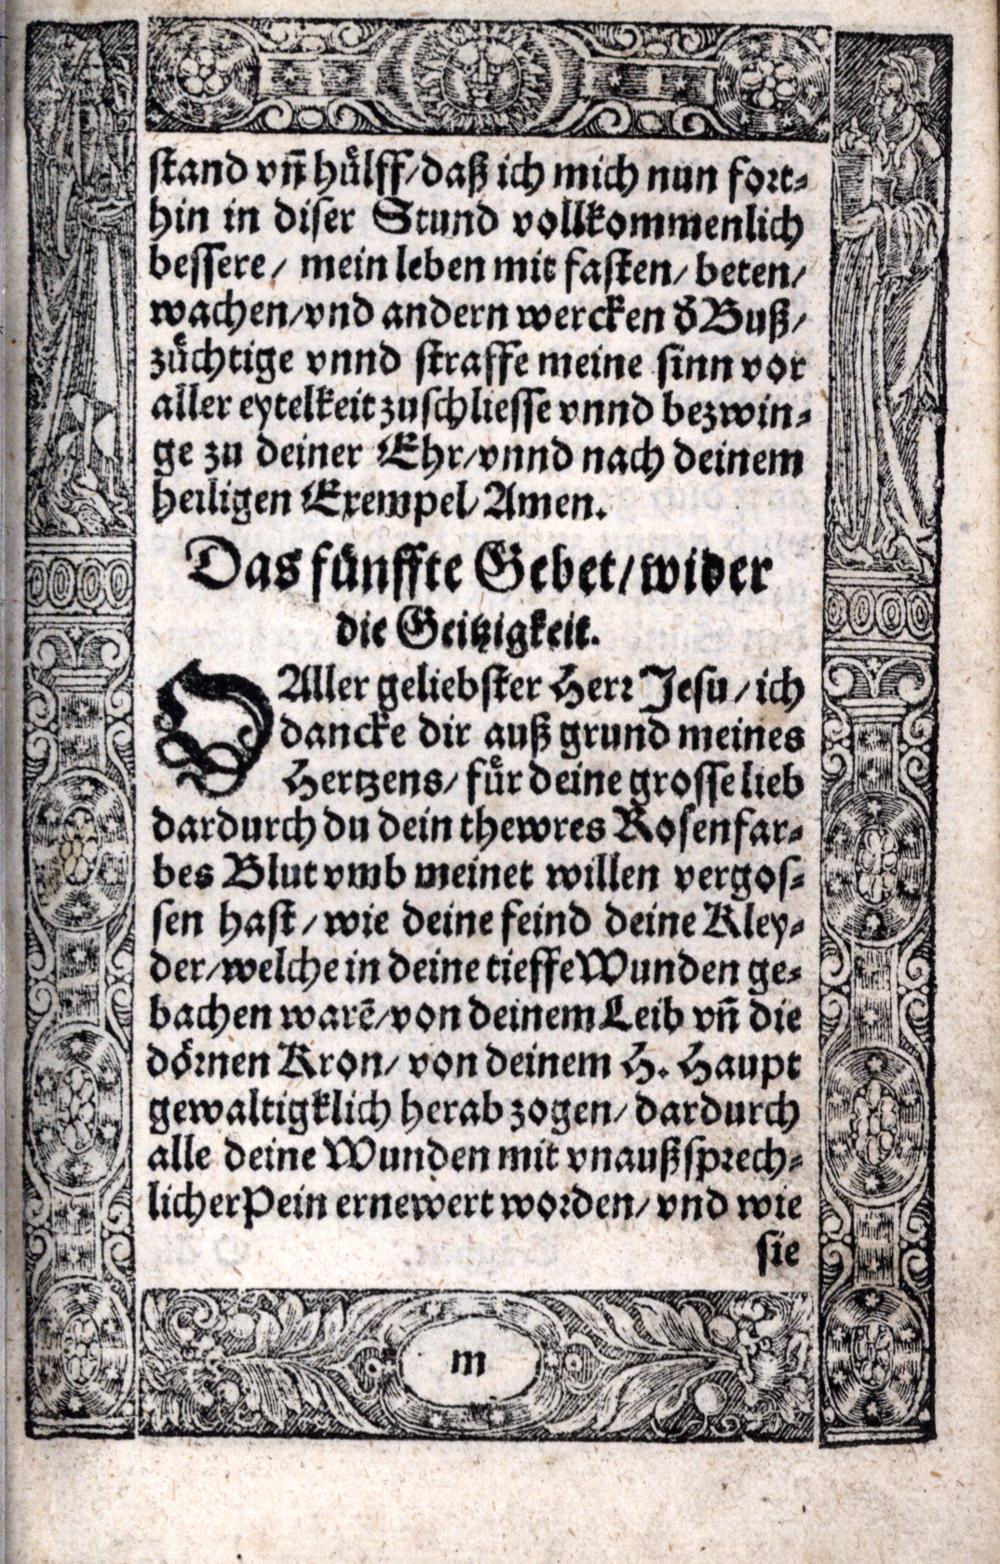 stand vñ hülff/daß ich mich nun fort⸗
hin in diser Stund vollkommenlich
bessere/ mein leben mit fasten/ beten/
wachen/vnd andern wercken đ Buß/
züchtige vnnd straffe meine sinn vor
aller eytelkeit zuschliesse vnnd bezwin⸗
ge zu deiner Ehr/vnnd nach deinem
heiligen Exempel/Amen.
Das fünffte Gebet/wider
die Geitzigkeit.
O Aller geliebster Herr Jesu/ich
dancke dir auß grund meines
Hertzens/ für deine grosse lieb
dardurch du dein thewres Rosenfar⸗
bes Blut vmb meinet willen vergos⸗
sen hast/wie deine feind deine Kley⸗
der/welche in deine tieffe Wunden ge⸗
bachen warẽ/von deinem Leib vñ die
dörnen Kron/ von deinem H. Haupt
gewaltigklich herab zogen/dardurch
alle deine Wunden mit vnaußsprech⸗
licher Pein ernewert worden/vnd wie
sie
m